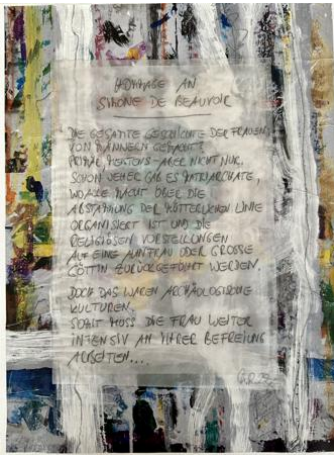 HOMMAGE AN
SIMONE DE BEAUVOIR
DIE GESAMTE GESCHICHTE DER FRAUEN
VON MÄNNERN GEMACHT
PRIMAR MEISTENS - ABER NICHT NUR.
SCHON JEHER GAB ES MATRIARCHATE,
WO ALLE MACHT ÜBER DIE
ABSTAMMUNG DER MÜTTERLICHEN LINIE
ORGANISIERT IST UND DIE
RELIGIÖSEN VORSTELLUNGEN
AUF EINE AHNFRAU ODER GROSSE
GÖTTIN ZURÜCKGEFÜHRT WERDEN.
DOCH DAS WAREN ARCHÄOLOGISCHE
KULTUREN.
SONST MUSS DIE FRAU WEITER
INTENSIV AN IHRER BEFREIUNG
ARBEITEN...